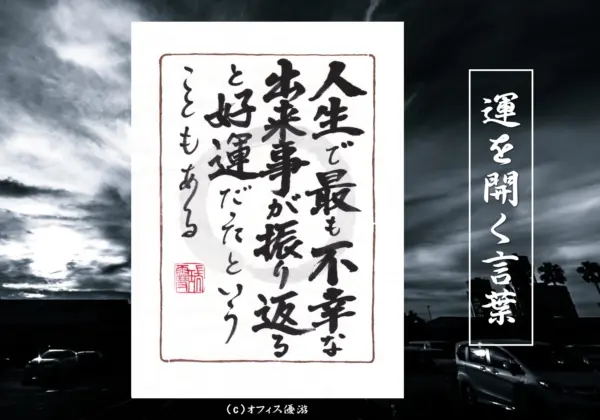 人生で最も不幸な
出来事が振り返る
と好運だったという
こともある
運を開く言葉
(c)オフィス優游